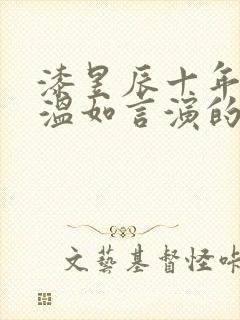 漆昱辰十年
温如言演的
文藝基督怪咔